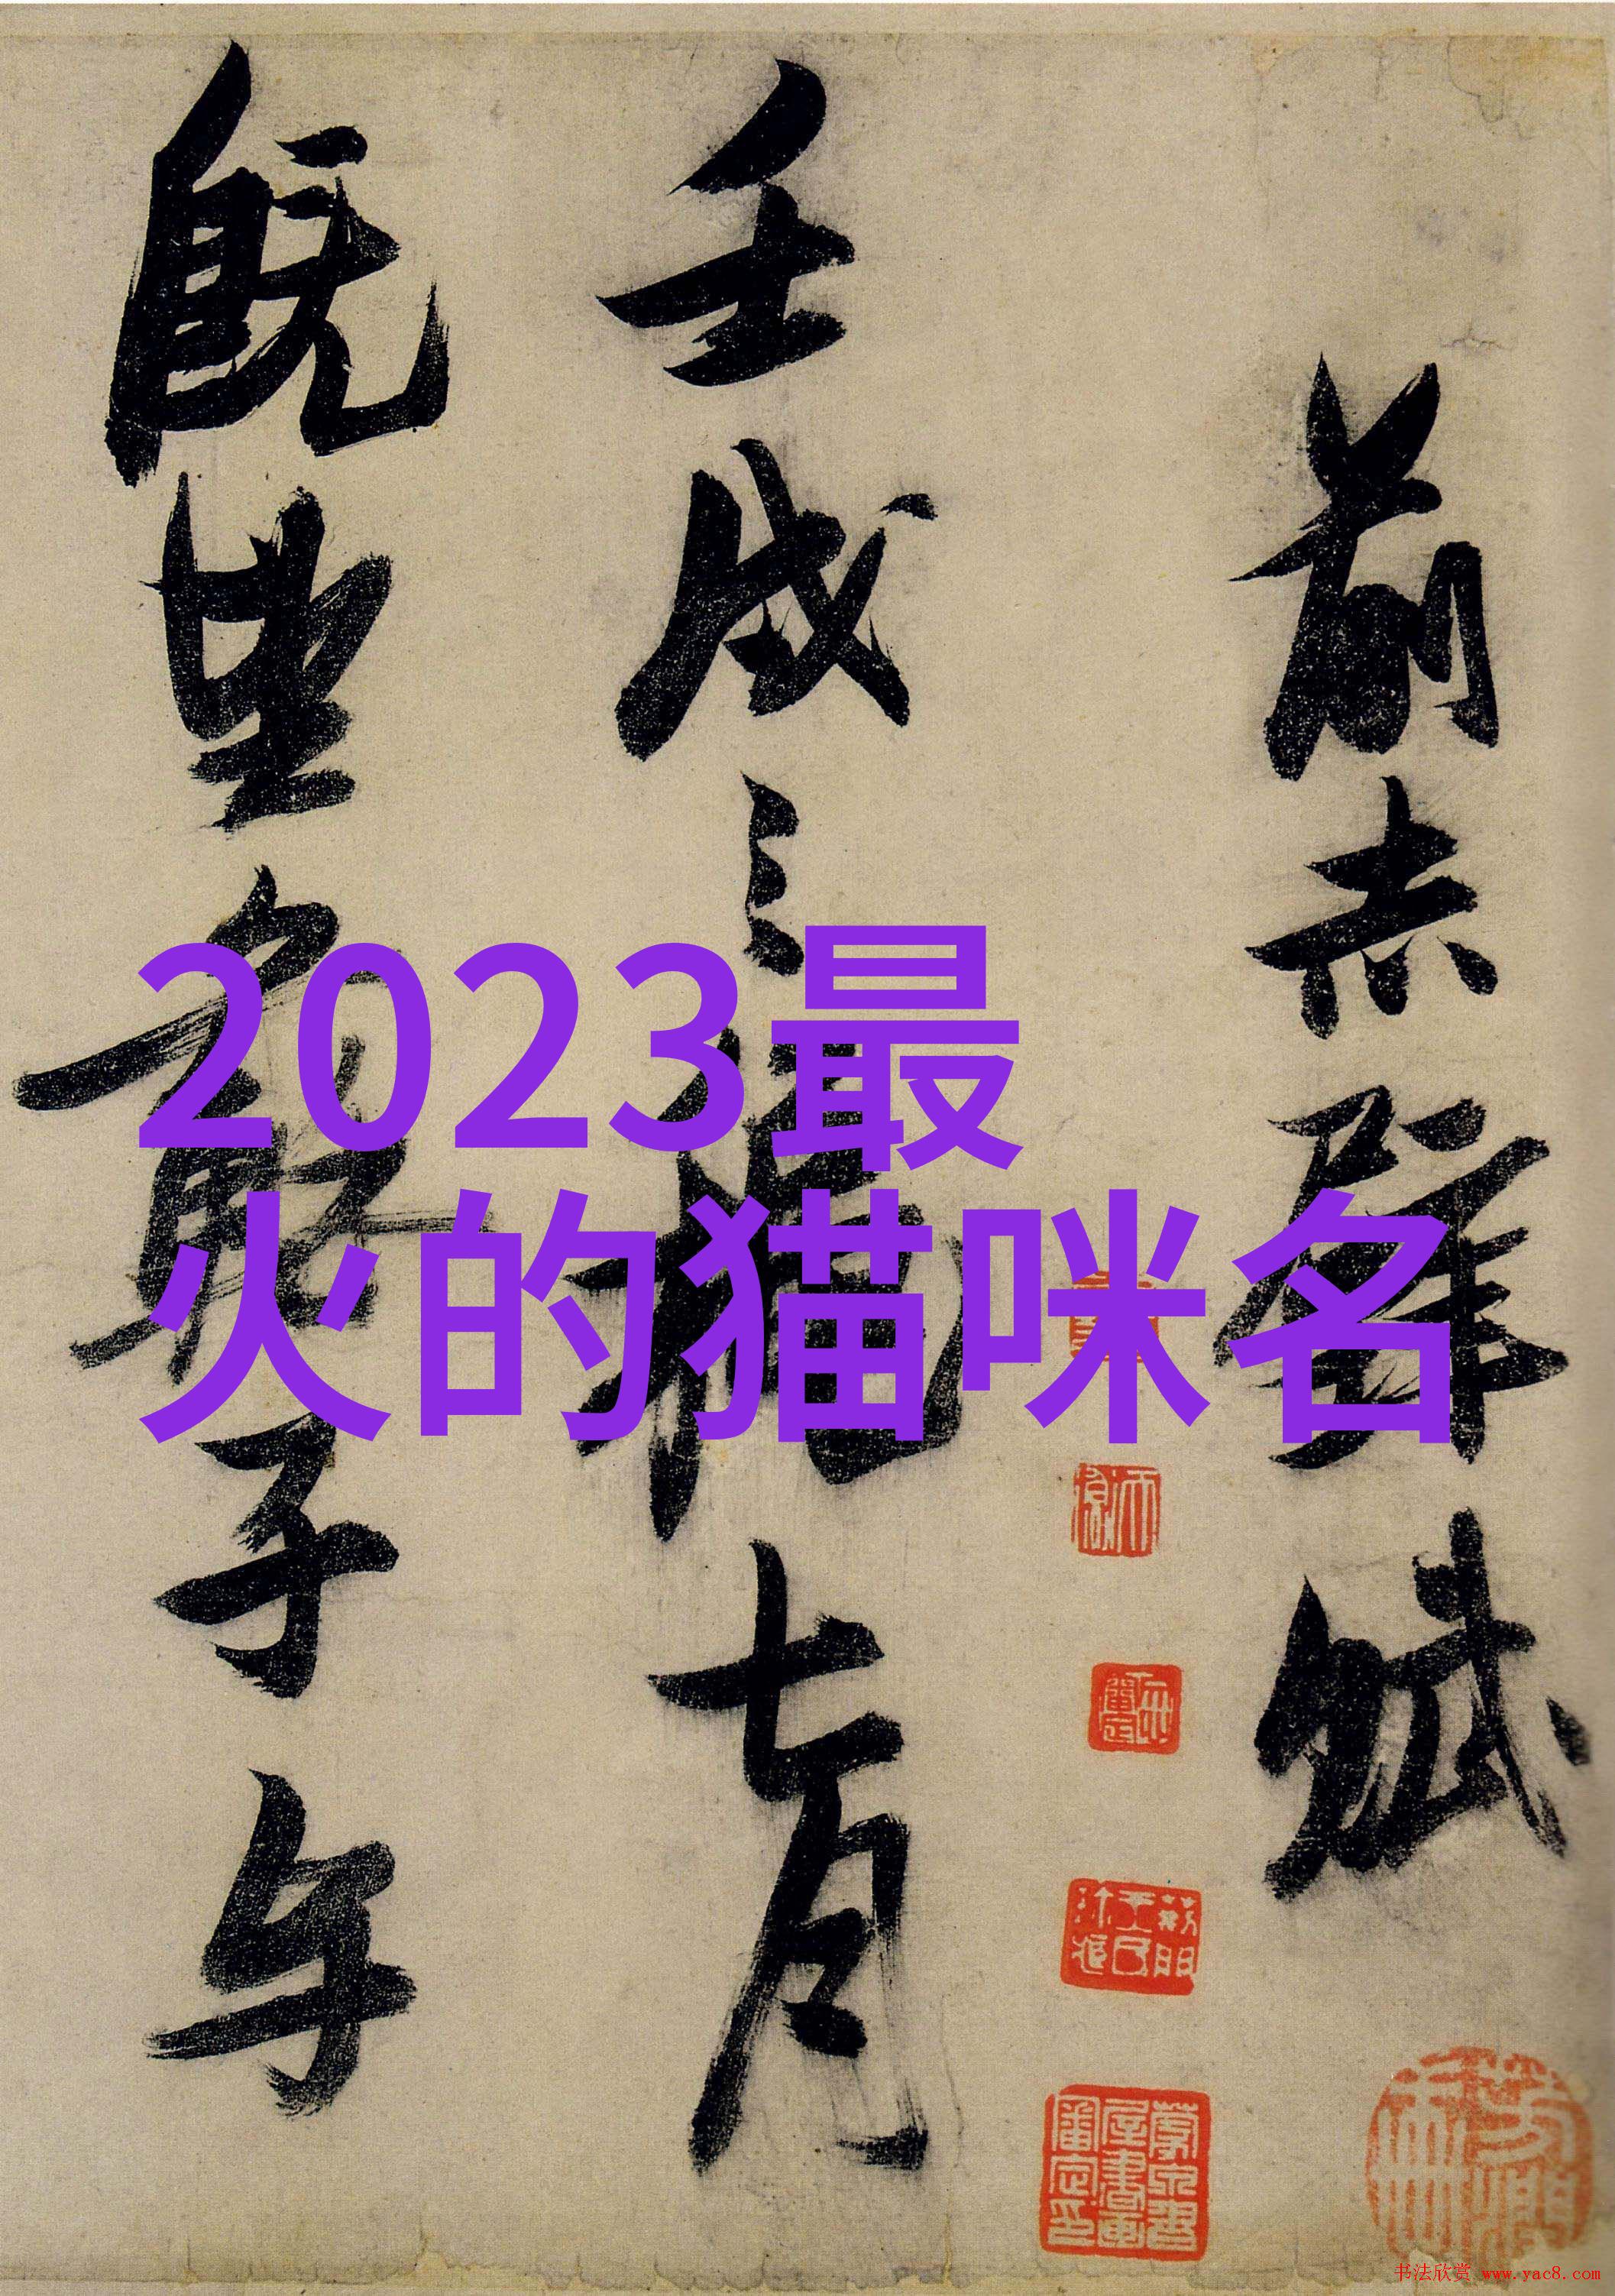 前赤壁賦
壬戌之秋七月
既望蘇子与
2023最
火的猫咪名
书法欣赏 www.yac8.com